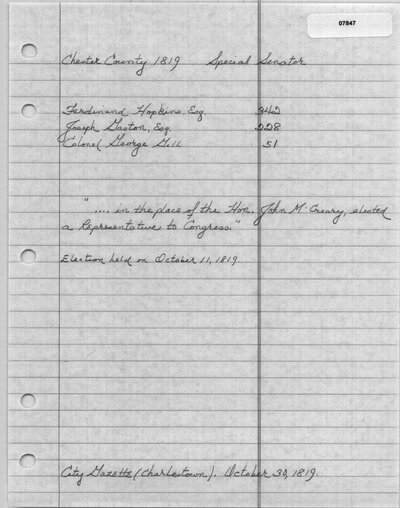 07847
Chester County 1819 Special Senator
Ferdinand Hopkins, Esq. 942
Joseph Gaston, Esq. 228
Colonel George Gill 51
".... in the place of the Hon. John McCreary, elected
a Representative to Congress."
Election held on October 11, 1819.
City Gazette (Charlestown). October 30, 1819.